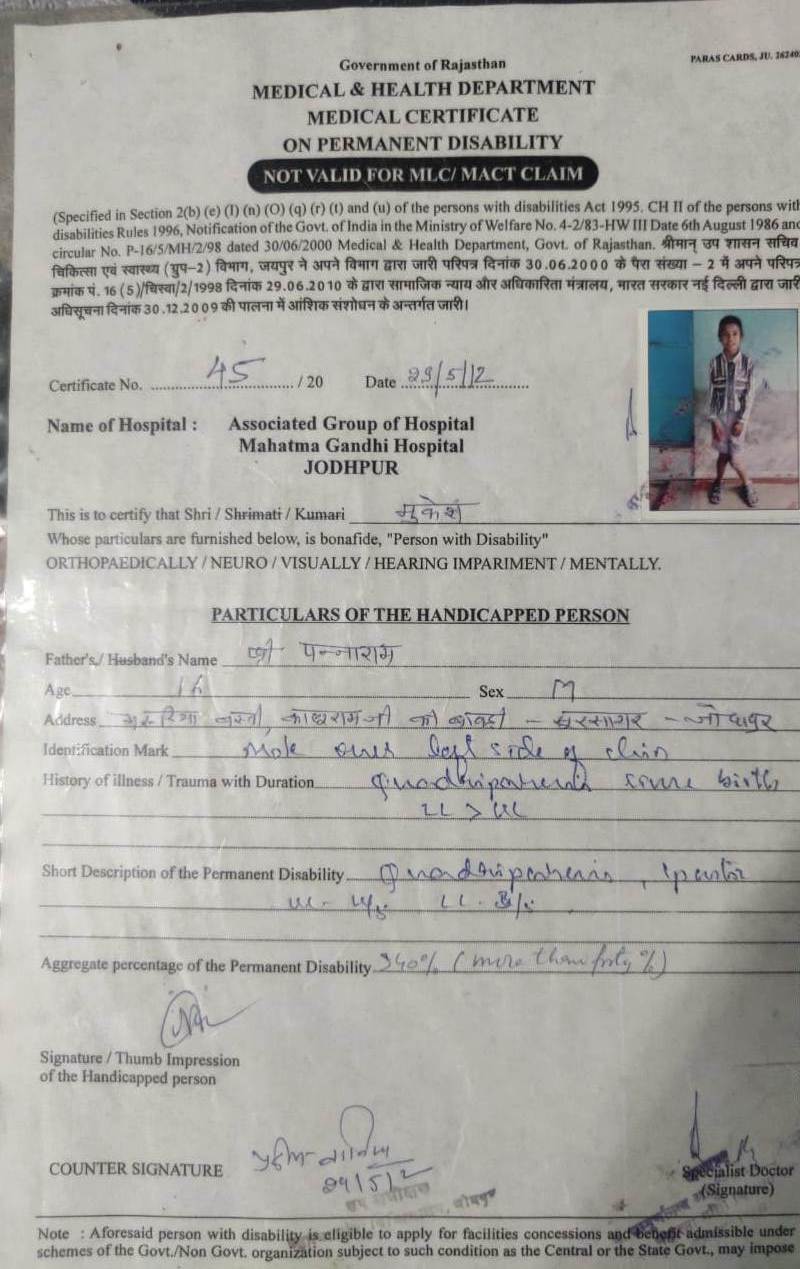 PARAS CARDS, JU. 26240
Government of Rajasthan
MEDICAL & HEALTH DEPARTMENT
MEDICAL CERTIFICATE
ON PERMANENT DISABILITY
NOT VALID FOR MLC/ MACT CLAIM
(Specified in Section 2(b) (e) (I) (n) (O) (q) (r) (t) and (u) of the persons with disabilities Act 1995. CH II of the persons with
disabilities Rules 1996, Notification of the Govt. of India in the Ministry of Welfare No. 4-2/83-HW III Date 6th August 1986 and
circular No. P-16/5/MH/2/98 dated 30/06/2000 Medical & Health Department, Govt. of Rajasthan. श्रीमान् उप शासन सचिव
चिकित्सा एवं स्वास्थ्य (ग्रुप-2) विभाग, जयपुर ने अपने विभाग द्वारा जारी परिपत्र दिनांक 30.06.2000 के पैरा संख्या - 2 में अपने परिपत्र
क्रमांक पं. 16 (5)/चिस्वा/2/1998 दिनांक 29.06.2010 के द्वारा सामाजिक न्याय और अधिकारिता मंत्रालय, भारत सरकार नई दिल्ली द्वारा जारी
अधिसूचना दिनांक 30.12.2009 की पालना में आंशिक संशोधन के अन्तर्गत जारी।
Certificate No. 45 / 20 Date 29/5/12
Name of Hospital : Associated Group of Hospital
Mahatma Gandhi Hospital
JODHPUR
This is to certify that Shri / Shrimati / Kumari मुकेश
Whose particulars are furnished below, is bonafide, "Person with Disability"
ORTHOPAEDICALLY / NEURO / VISUALLY / HEARING IMPARIMENT / MENTALLY.
PARTICULARS OF THE HANDICAPPED PERSON
Father's./ Husband's Name श्री पन्नाराम
Age 16 Sex M
Address बस्ती, की बावडी - सूरसागर - जोधपुर
Identification Mark Mole over left side of chin
History of illness / Trauma with Duration quadriparesis since birth
LL > UL
Short Description of the Permanent Disability Quadriparesis,
UL - 4/5 LL - 3/5
Aggregate percentage of the Permanent Disability >40% (more than forty %)
Signature / Thumb Impression
of the Handicapped person
COUNTER SIGNATURE
29/5/12
Specialist Doctor
(Signature)
Note : Aforesaid person with disability is eligible to apply for facilities concessions and benefit admissible under
schemes of the Govt./Non Govt. organization subject to such condition as the Central or the State Govt., may impose